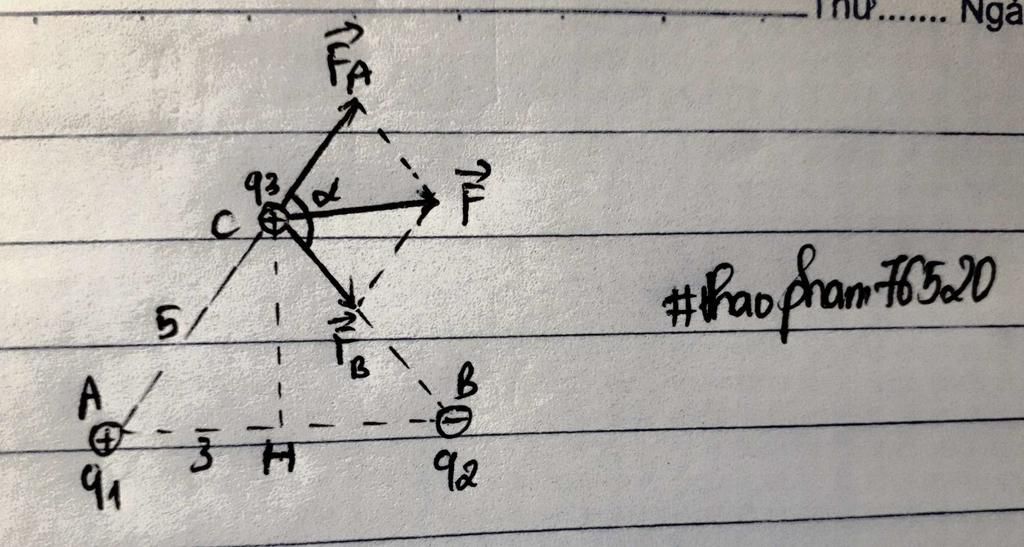 Thứ....... Ngà
F⃗A
q3
α
C
F⃗
5
F⃗B
#thaopham76520
A
B
3
H
q1
q2